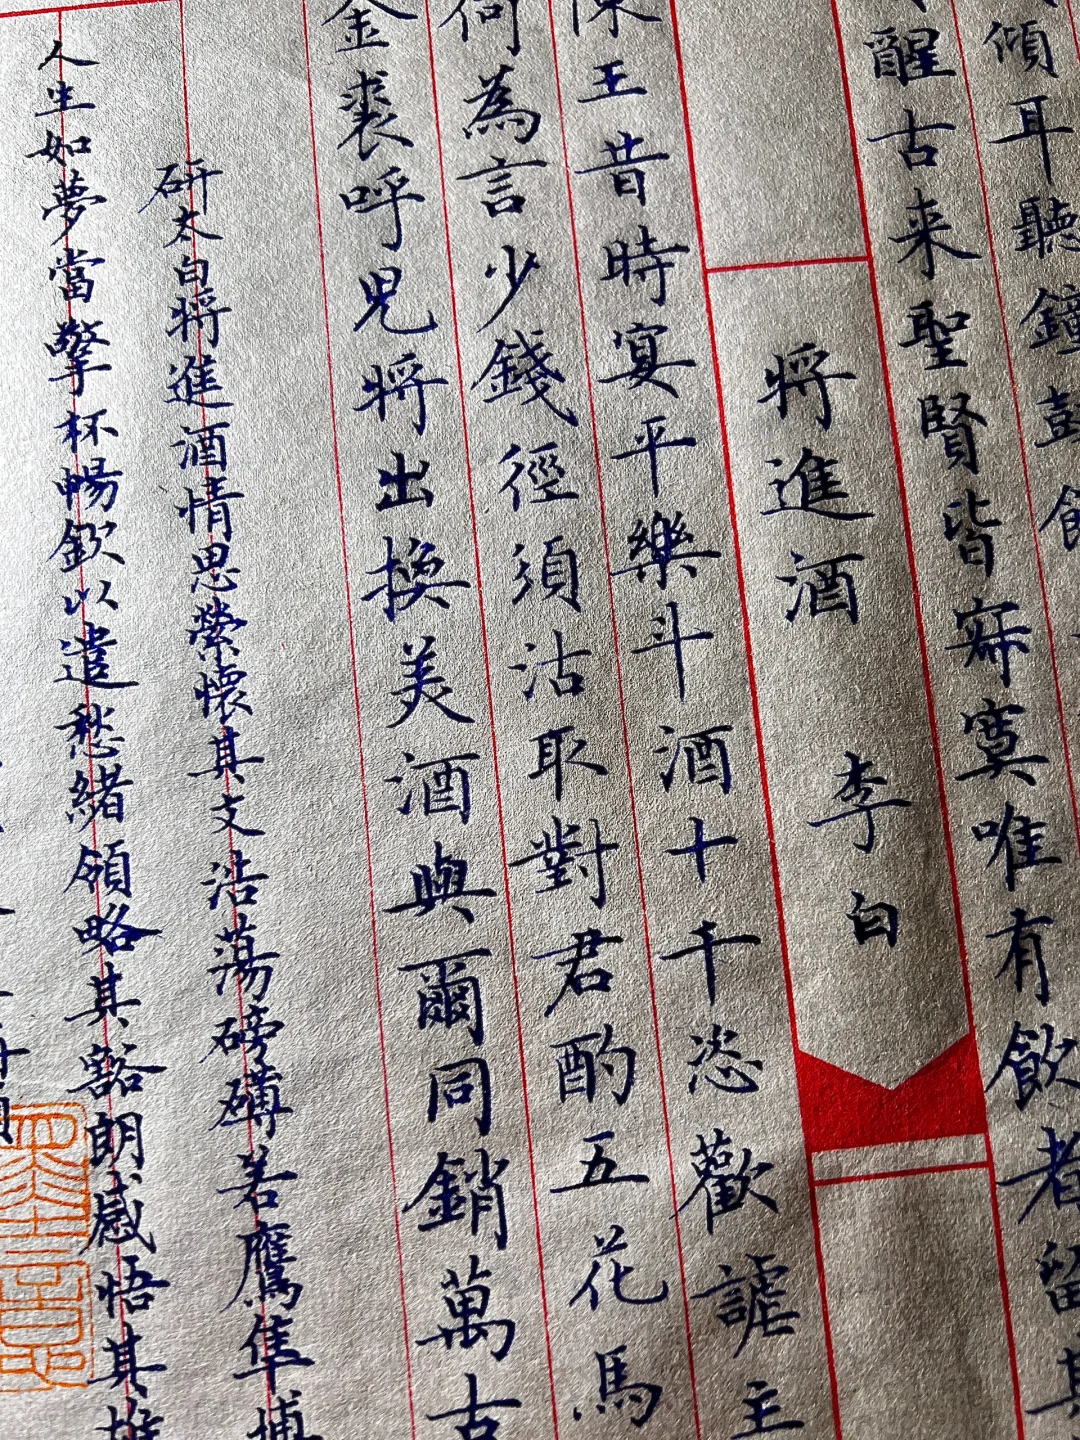 傾耳聽鐘鼓
醒古来聖賢皆寂寞唯有飲者留其
将進酒 李白
陳王昔時宴平樂斗酒十千恣歡謔主
何為言少錢徑須沽取對君酌五花馬
金裘呼児将出換美酒與爾同銷萬古
研太白将進酒情思縈懷其文浩蕩磅礴若鷹隼搏
人生如夢當擎杯暢飲以遣愁緒領略其豁朗感悟其